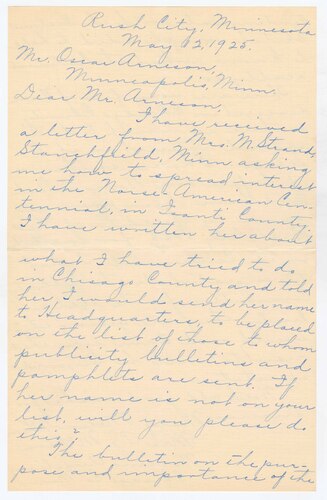 Rush City, Minnesota
May 12, 1925.
Mr. Oscar Arneson,
Minneapolis, Minn.
Dear Mr. Arneson,
I have received
a letter from Mrs. M. Strand,
Stanchfield, Minn asking
me how to spread interest
in the Norse-American Cen-
tennial, in Isanti County.
I have written her about
what I have tried to do
in Chisago County and told
her, I would send her name
to Headquarters, to be placed
on the list of those to whom
publicity bulletins and
pamphlets are sent. If
her name is not on your
list, will you please do
this?
The bulletin on the pur-
pose and importance of the